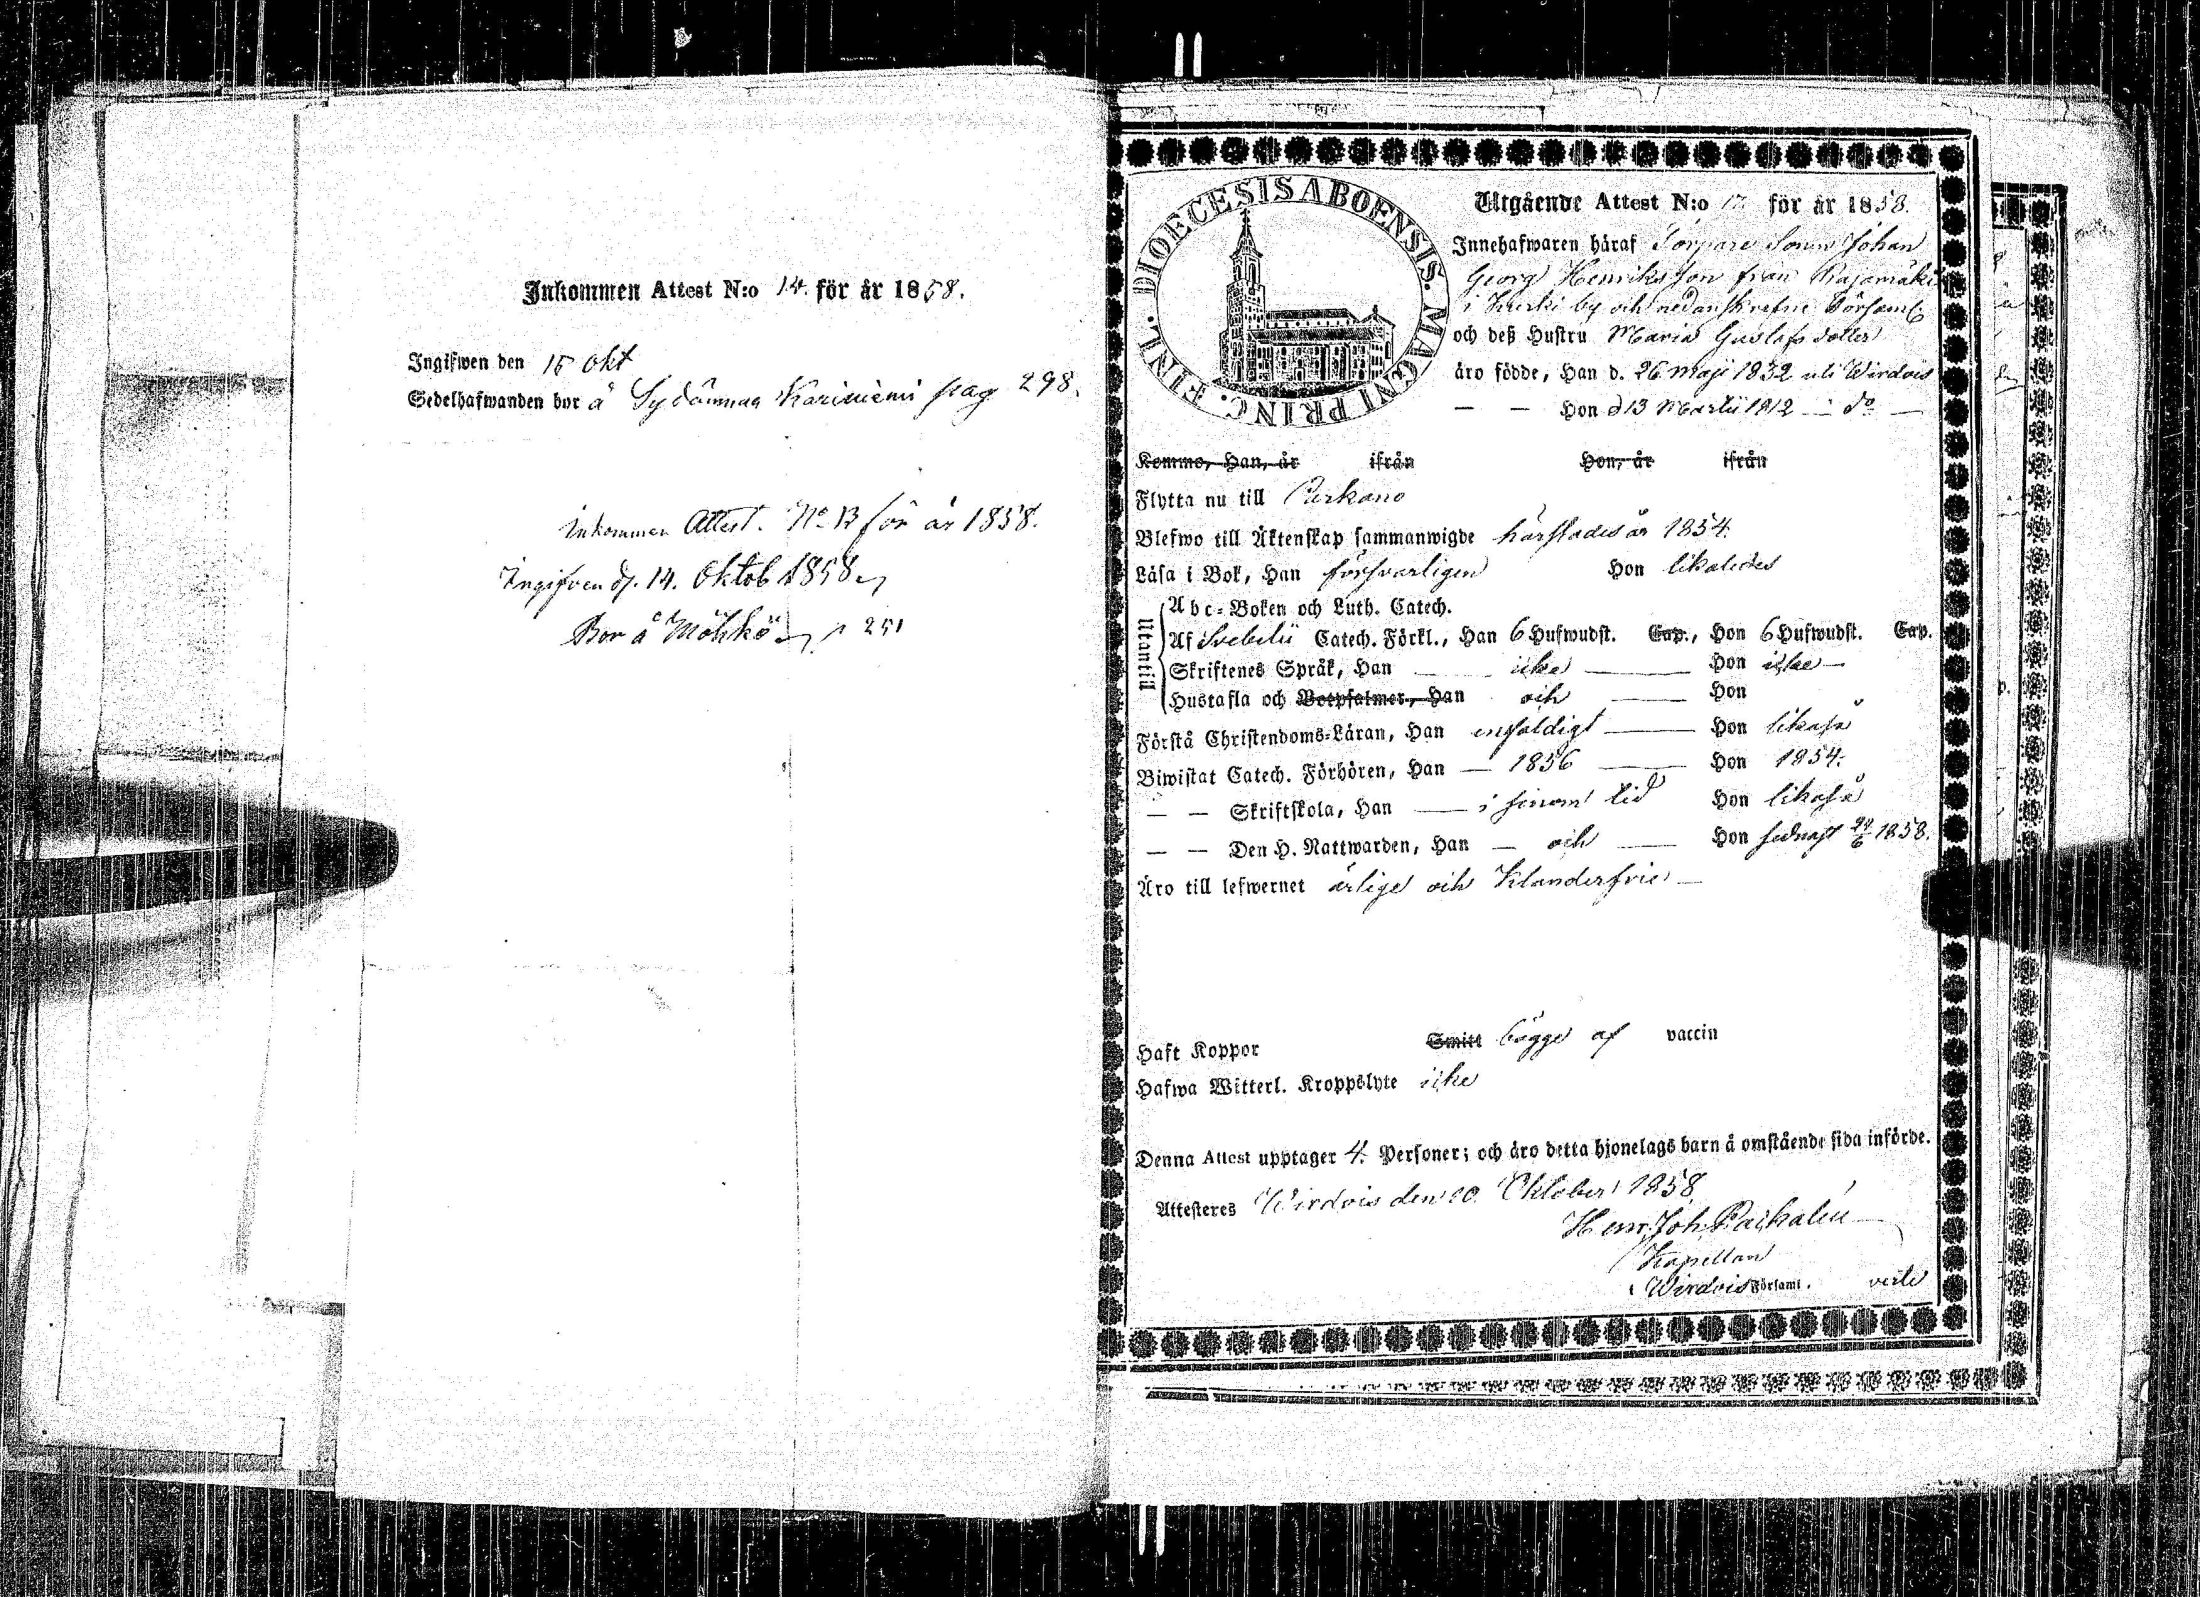 Inkommen Attest N:o 14. för år 1858.
Ingifwen den 15 Okt
Sedelhafwanden bor å Sydänmaa Kariniemi pag 298.
Inkommen Attest. No 13 för år 1858.
Ingifven d. 14. Oktob 1858
Bor å Möhkö p 251
DIOECESIS ABOENSIS. MAGNI PRINC. FINL.
Utgående Attest N:o 17. för år 1858.
Innehafwaren häraf Torpare Sonen Johan
Georg Henriksson från Rajamäki
i Kurki by och nedanskrefne Församl.
och deß Hustru Maria Gustafsdotter
äro födde, Han d. 26 Maji 1832 uti Wirdois
— — Hon d 13 Martii 1812 — do —
Komne, Han, år ifrån Hon, år ifrån
Flytta nu till Parkano
Blefwo till Äktenskap sammanwigde härstädes år 1854.
Läsa i Bok, Han försvarligen Hon likaledes
Utantill
Abc-Boken och Luth. Catech.
Af Svebelii Catech. Förkl., Han 6 Hufwudst. Cap., Hon 6 Hufwudst. Cap.
Skriftenes Språk, Han — icke — Hon icke —
Hustafla och Botpsalmer, Han och — Hon
Förstå Christendoms-Läran, Han enfaldigt — Hon likaså
Biwistat Catech. Förhören, Han — 1856 — Hon 1854.
— — Skriftskola, Han — i sinom tid Hon likaså
— — Den H. Nattwarden, Han — och — Hon sednast 24/6 1858.
Äro till lefwernet ärlige och klanderfrie —
Haft Koppor Smitt bägge af vaccin
Hafwa Witterl. Kroppslyte icke
Denna Attest upptager 4. Personer; och äro detta hjonelags barn å omstående sida införde.
Attesteres Wirdois den 10. Oktober 1858.
Henr. Joh. Packalén
Kapellan
i Wirdois Församl. verte